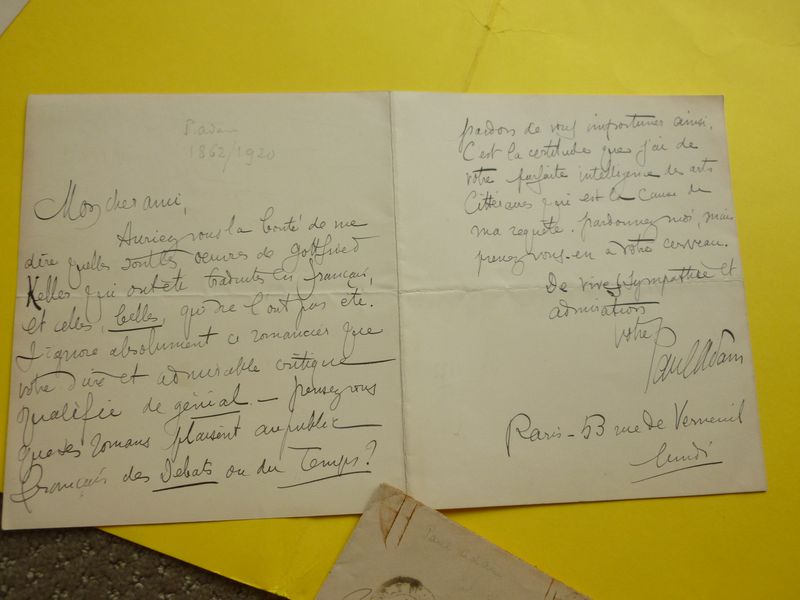 P. Adam
1862/1920
Mon cher ami,
Auriez vous la bonté de me
dire quelles sont les oeuvres de Gottfried
Keller qui ont été traduites en français,
et celles, belles, qui ne l'ont pas été.
J'ignore absolument ce romancier que
votre sûre et admirable critique
qualifie de génial — pensez vous
que ses romans plaisent au public
français des Débats ou du Temps?
pardon de vous importuner ainsi.
C'est la certitude que j'ai de
votre parfaite intelligence des arts
littéraires qui est la cause de
ma requête. pardonnez moi, mais
prenez vous-en à votre cerveau.
De vive sympathie et
admiration
votre
Paul Adam
Paris - 53 rue de Verneuil
lundi
Paul Adam